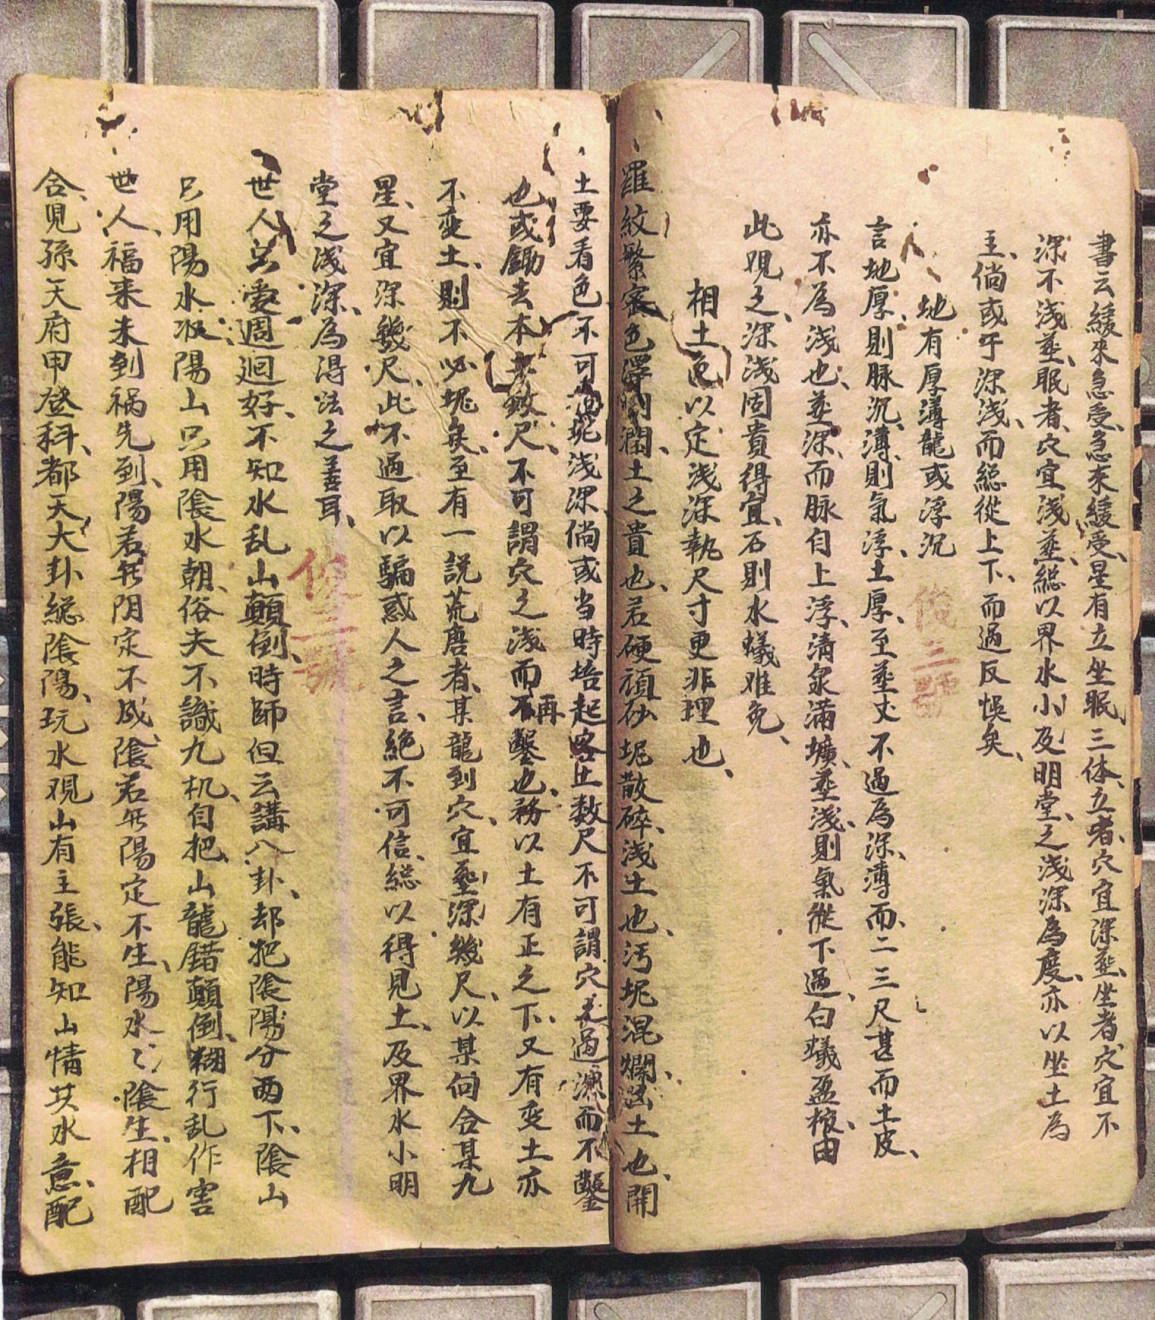 書云緩來急受急來緩受星有立坐眠三体立者穴宜深塟坐者穴宜不
深不浅塟眠者穴宜浅塟総以界水小及明堂之浅深為度亦以坐土為
主倘或于深浅而総從上下而過反悞矣
地有厚薄龍或浮沉
俊三號
言地厚則脉沉薄則氣浮土厚至塟丈不過為深薄而二三尺甚而土皮
亦不為浅也塟深而脉自上浮清泉滿壙塟浅則氣從下過白蟻盈棺由
此覌之深浅固貴得宜否則水蟻难免
相土色以定浅深執尺寸更非理也
羅紋緊密色澤明潤土之貴也若硬頑砂坭散碎浅土也污坭混爛土也開
土要看色不可坭浅深倘或当時培起客土数尺不可謂穴之過深而不鑿
也或鋤去本土数尺不可謂穴之浅而不再鑿也務以土有正之下又有变土亦
不变土則不必坭矣至有一說荒唐者某龍到穴宜塟深幾尺以某何合某九
星又宜深幾尺此不過取以騙惑人之言絶不可信総以得見土及界水小明
堂之浅深為得法之善耳
俊三號
世人只愛週迴好不知水乱山顛倒時師但云講八卦却把陰陽分両下陰山
只用陽水収陽山只用陰水朝俗夫不識九机自把山龍錯顛倒糊行乱作害
世人福來未到禍先到陽若无阴定不成陰若无陽定不生陽水〻陰生相配
合児孫天府甲登科都天大卦総陰陽玩水覌山有主張能知山情共水意配